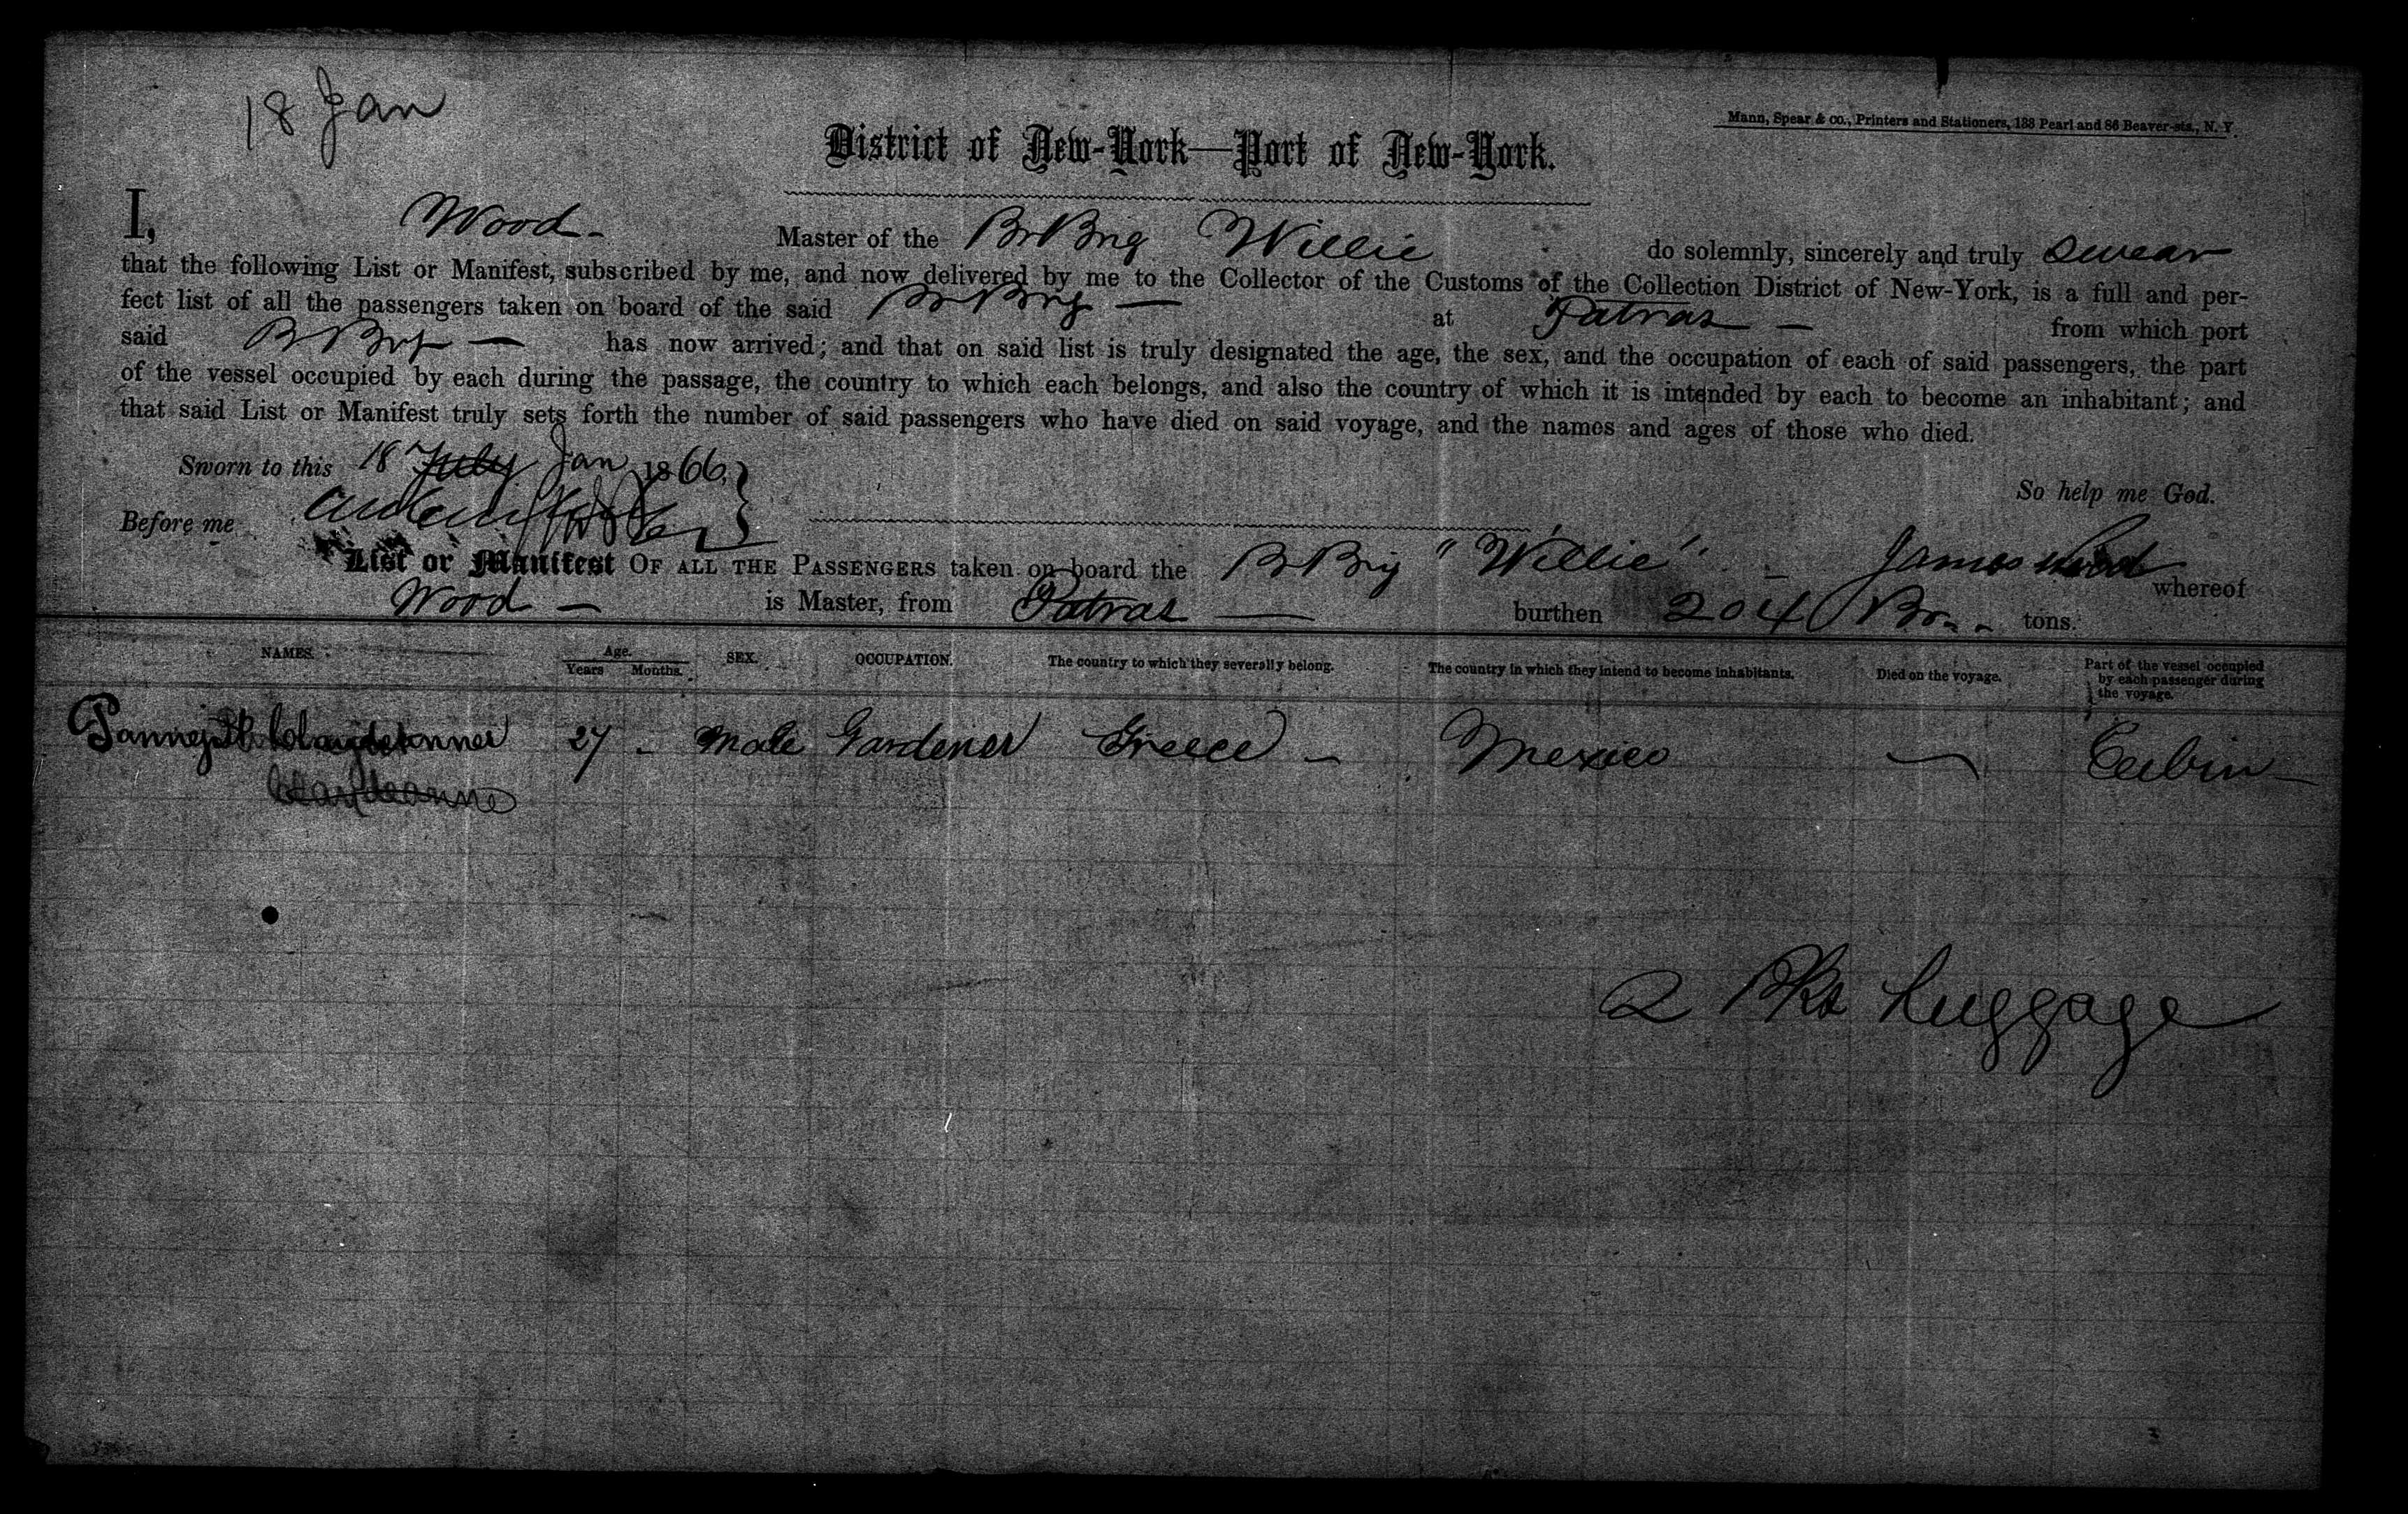 18 Jan
Mann, Spear & co., Printers and Stationers, 188 Pearl and 86 Beaver-sts., N. Y.
District of New-York—Port of New-York.
I, Wood - Master of the Br Brig Willie do solemnly, sincerely and truly swear
that the following List or Manifest, subscribed by me, and now delivered by me to the Collector of the Customs of the Collection District of New-York, is a full and per-
fect list of all the passengers taken on board of the said Br Brig — at Patras — from which port
said Br Brg — has now arrived; and that on said list is truly designated the age, the sex, and the occupation of each of said passengers, the part
of the vessel occupied by each during the passage, the country to which each belongs, and also the country of which it is intended by each to become an inhabitant; and
that said List or Manifest truly sets forth the number of said passengers who have died on said voyage, and the names and ages of those who died.
Sworn to this 18 July Jan 1866,
So help me God.
Before me
List or Manifest OF ALL THE PASSENGERS taken on board the Br Brig "Willie" - James Wood whereof
Wood — is Master, from Patras — burthen 204 Br. - tons.
NAMES. Age. Years Months. SEX. OCCUPATION. The country to which they severally belong. The country in which they intend to become inhabitants. Died on the voyage. Part of the vessel occupied by each passenger during the voyage.
27 - Male Gardener Greece - Mexico — Cabin
2 Pks Luggage